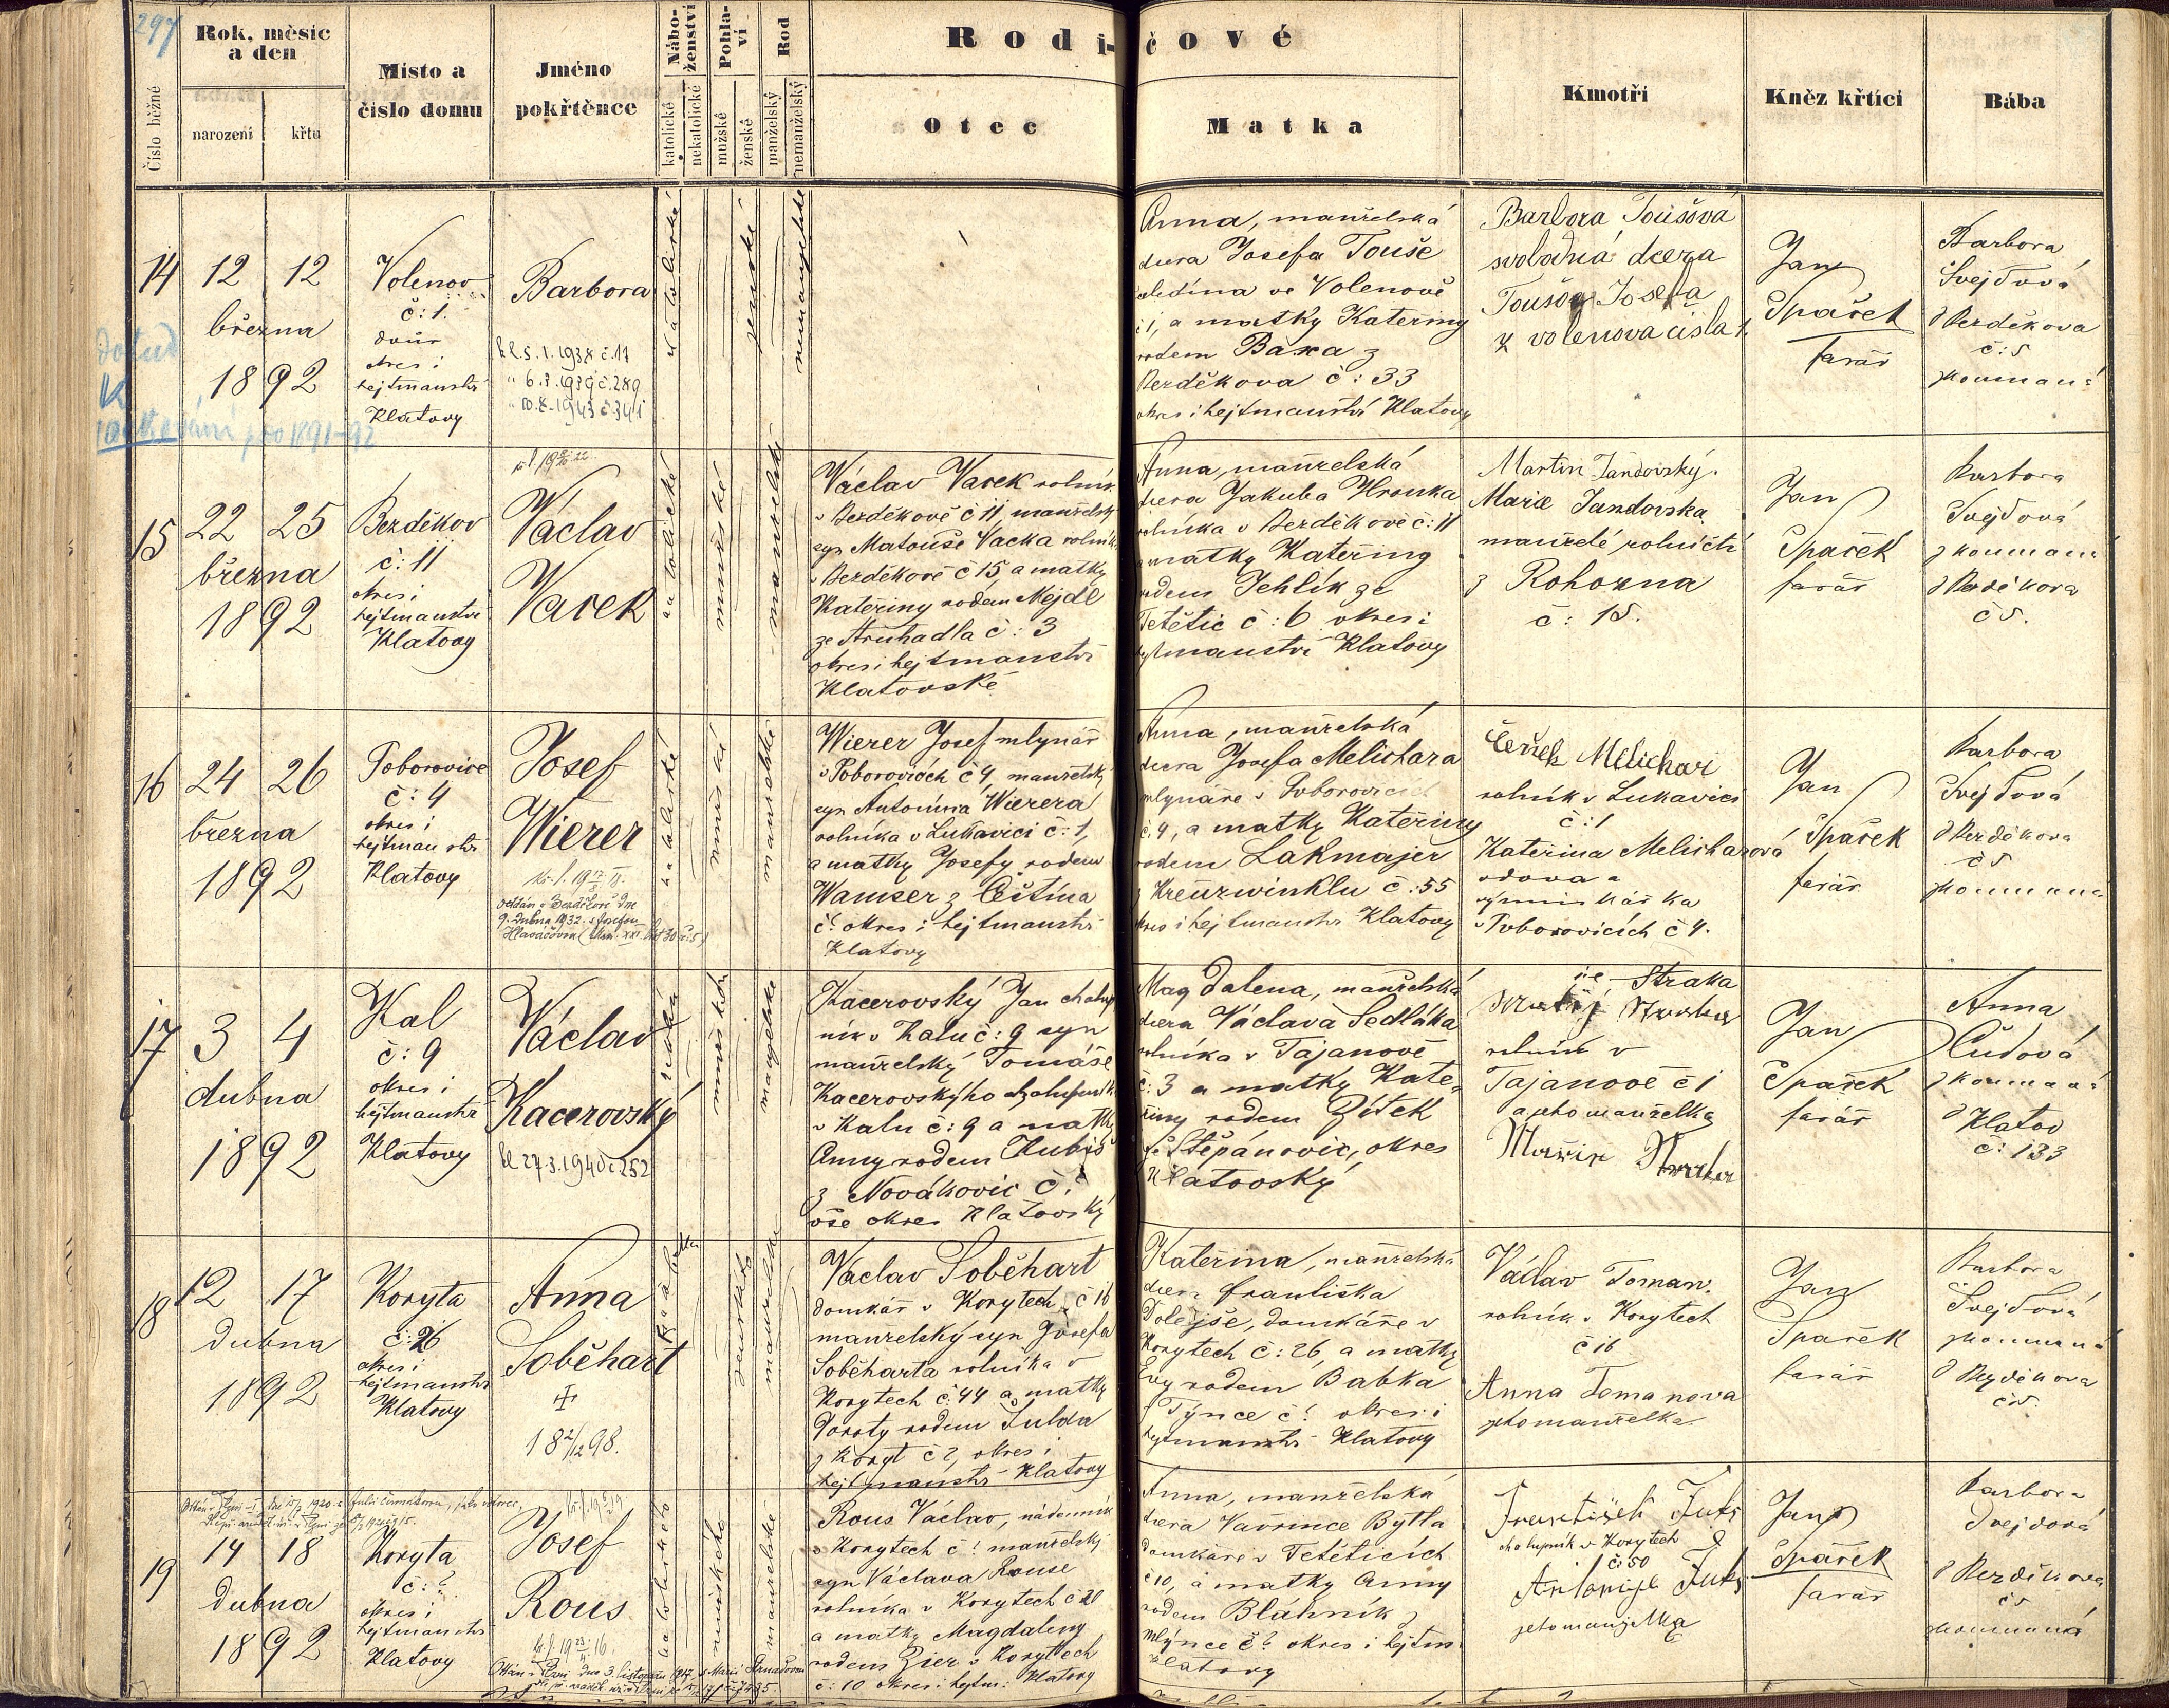 297
Číslo běžné
Rok, měsíc
a den
narození
křtu
Místo a
číslo domu
Jméno
pokřtěnce
Nábo-
ženství
katolické
nekatolické
Pohla-
ví
mužské
ženské
Rod
manželský
nemanželský
Rodi-čové
Otec
Matka
Kmotři
Kněz křtící
Bába
14
12 12
března
1892
Volenov
č: 1.
dvůr
okres i
hejtmanství
Klatovy
Barbora
katolické
ženské
nemanželské
Anna, manželská
dcera Josefa Touše
čeledína ve Volenově
č 1, a matky Kateřiny
rodem Baxa z
Bezděkova č: 33
okres i hejtmanství Klatovy
Barbora Toušová
svobodná dcera
Toušova Josefa
z volenova čísla 1.
Jan
Spaček
farář
Barbora
Švejdová
z Bezděkova
č: 5
zkoumaná
15
22 25
března
1892
Bezděkov
č: 11
okres i
hejtmanství
Klatovy
Václav
Vacek
katolické
mužské
manželské
Václav Vacek rolník
v Bezděkově č 11 manželský
syn Matouše Vacka rolníka
v Bezděkově č 15 a matky
Kateřiny rodem Mejdl
ze Struhadla č: 3
okres i hejtmanství
Klatovské
Anna, manželská
dcera Jakuba Hronka
rolníka v Bezděkově č: 11
a matky Kateřiny
rodem Jehlík ze
Tetětic č: 6 okres i
hejtmanství Klatovy
Martin Jandovský.
Marie Jandovska
manželé rolničtí
z Rohozna
č: 15.
Jan
Spaček
farář
Barbora
Švejdová
zkoumaná
z Bezděkova
č 5.
16
24 26
března
1892
Poborovice
č: 4
okres i
hejtmanství
Klatovy
Josef
Wierer
oddán v Bezděkově dne
9. dubna 1932 s Josefou
Hlaváčovou
katolické
mužské
manželské
Wierer Josef mlynář
v Poborovicích č 4, manželský
syn Antonína Wierera
rolníka v Lukavici č: 1,
a matky Josefy rodem
Wamser z Čeština
č? okres i hejtmanství
Klatovy
Anna, manželská
dcera Josefa Melichara
mlynáře v Poborovicích
č. 4, a matky Kateřiny
rodem Lakmajer
z Kreuzwinklu č: 55
okres i hejtmanství Klatovy
Čeněk Melichar
rolník v Lukavici
č: 1
Kateřina Melicharová
vdova a
výminkářka
v Poborovicích č 4.
Jan
Spaček
farář
Barbora
Švejdová
z Bezděkova
č 5
zkoumaná
17
3 4
dubna
1892
Kal
č: 9
okres i
hejtmanství
Klatovy
Václav
Kacerovský
mužské
manželské
Kacerovský Jan chalup
ník v Kalu č: 9 syn
manželský Tomáše
Kacerovskýho chalupníka
v Kalu č: 9 a matky
Anny rodem Kubiš
z Novákovic č:
vše okres Klatovský
Magdalena, manželská
dcera Václava Sedláka
rolníka v Tajanově
č: 3 a matky Kate-
řiny rodem Zítek
ze Štěpánovic, okres
Klatovský
Straka
rolník v
Tajanově č 1
a jeho manželka
Jan
Spaček
farář
Anna
Čudová
zkoumaná
z Klatov
č: 133
18
12 17
dubna
1892
Koryta
č: 26
okres i
hejtmanství
Klatovy
Anna
Soběhart
✠
18 2/12 98.
ženské
manželské
Václav Soběhart
domkář v Korytech č 16
manželský syn Josefa
Soběharta rolníka v
Korytech č: 44 a matky
Doroty rodem Šulda
z Koryt č?, okres i
hejtmanství Klatovy
Kateřina, manželská
dcera Františka
Dolejše, domkáře v
Korytech č: 26, a matky
Evy rodem Babka
z Týnce č? okres i
hejtmanství Klatovy
Václav Toman.
rolník v Korytech
č 16
Anna Tomanova
jeho manželka
Jan
Spaček
farář
Barbora
Švejdová
zkoumaná
z Bezděkova
č 5.
19
14 18
dubna
1892
Koryta
č: ?
okres i
hejtmanství
Klatovy
Josef
Rous
katolické
mužské
manželské
Rous Václav, nádenník
v Korytech č? manželský
syn Václava Rouse
rolníka v Korytech č 20
a matky Magdaleny
rodem Zier z Korytech
č: 10 okres i hejtm: Klatovy
Anna, manželská
dcera Vavřince Bytla
domkáře v Tetěticích
č 10, a matky Anny
rodem Bláhník z
Mlýnce č? okres i hejtm.
Klatovy
František Fuks
chalupník v Korytech
č: 50
Antonije Fuks
jeho manželka
Jan
Spaček
farář
Barbora
Švejdová
z Bezděkova
č 5
zkoumaná